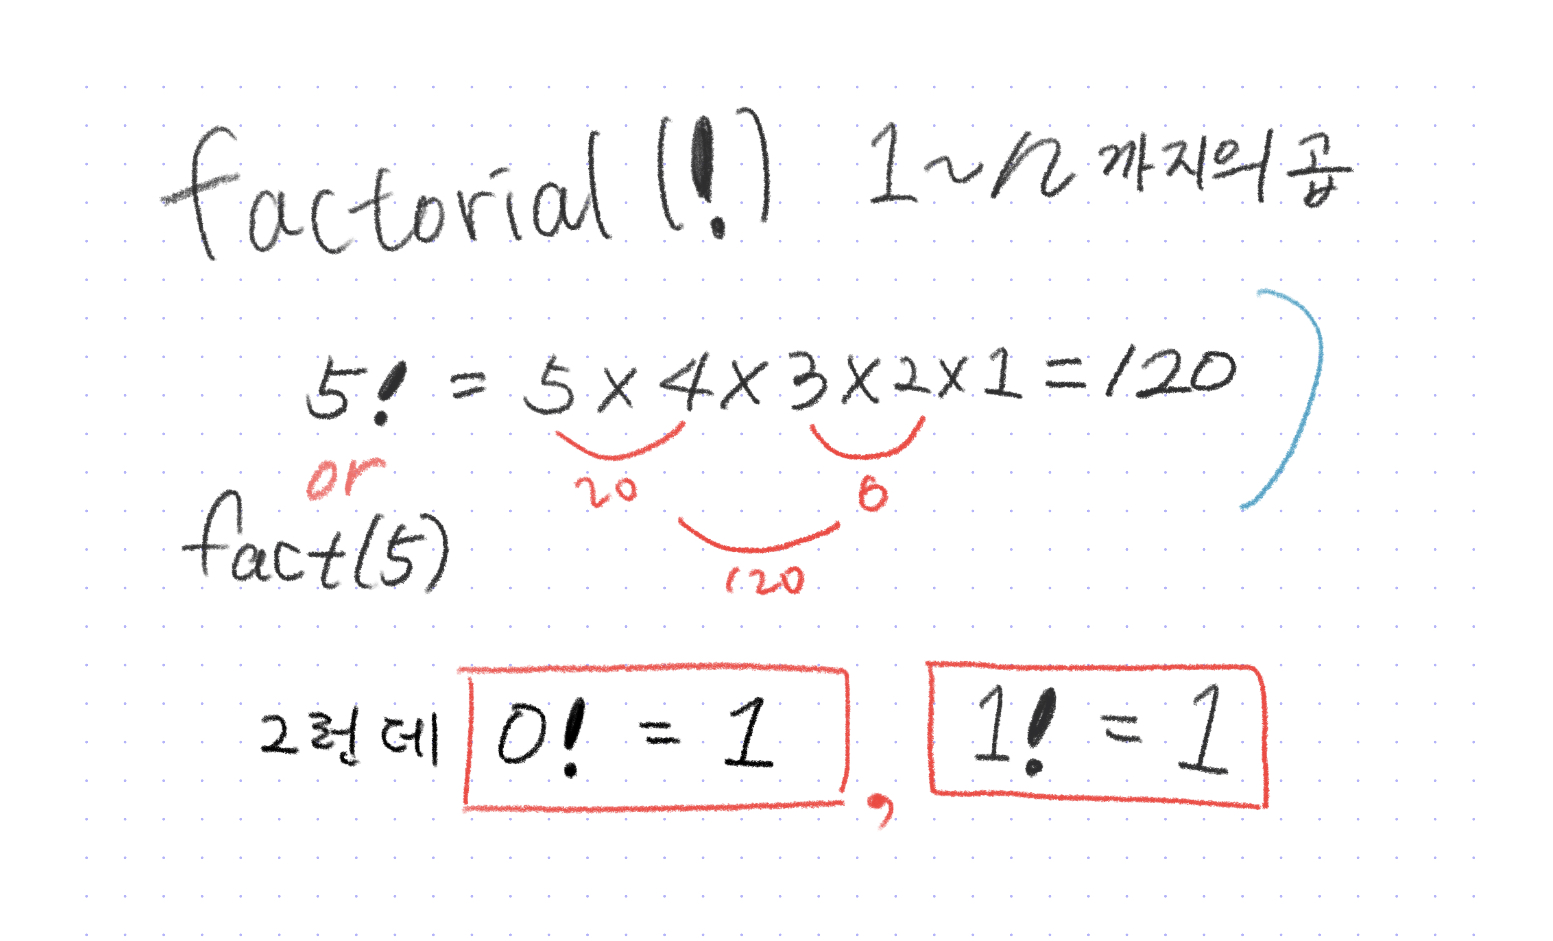 factorial (!) 1~n까지의 곱
5! = 5 x 4 x 3 x 2 x 1 = 120
or
20 6
fact(5)
120
그런데 0! = 1 , 1! = 1